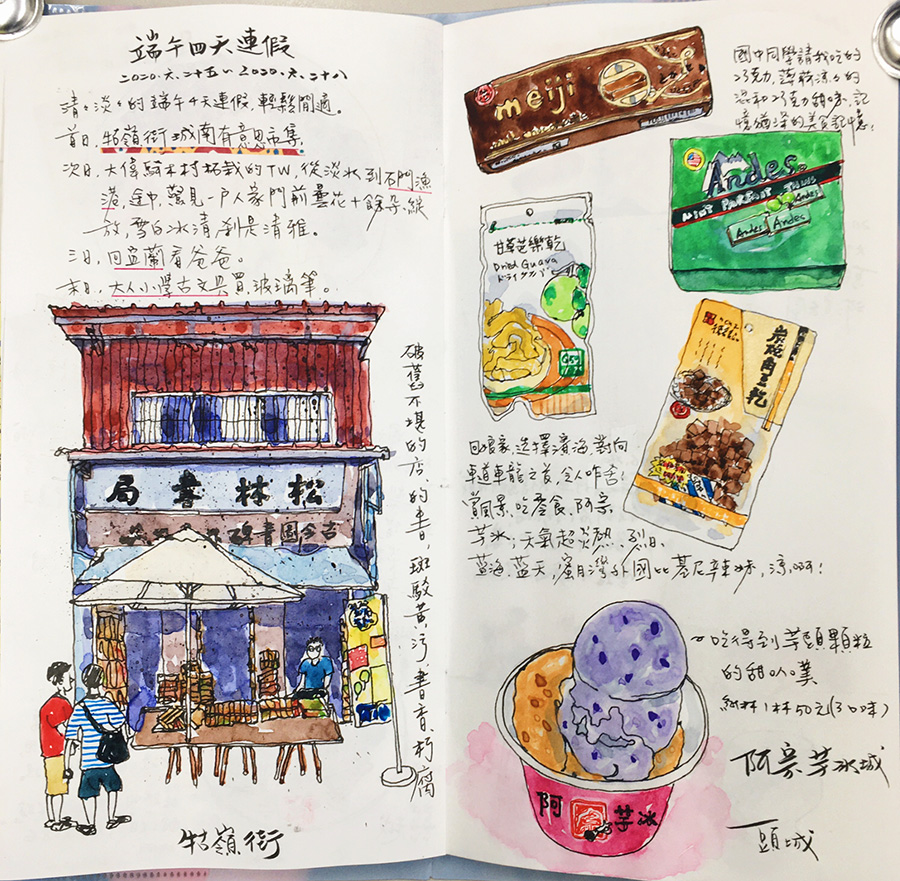 端午四天連假
2020.六.二十五~2020.六.二十八
清清淡淡的端午4天連假,輕鬆閒適。
首日,牯嶺街城南有意思市集,
次日,大偉騎木村拓哉的TW,從淡水到石門漁
港,途中,驚見一戶人家門前曇花十餘朵,綻
放,雪白冰清,剎是清雅。
三日,回宜蘭看爸爸。
末日,大人小學古文具買玻璃筆。
松林書局
古今圖書
破舊不堪的店、的書,斑駁黃污,書香、朽腐
牯嶺街
meiji
國中同學請我吃的
巧克力,薄荷涼涼的
混和巧克力甜味,記
憶猶深的美食記憶;
Andes
MINT PARFAIT THINS
Andes
Andes
Andes
甘草芭樂乾
Dried Guava
ドライグァバ
炭燒肉乾
回娘家,選擇濱海,對向
車道車龍之長,令人咋舌!
賞風景、吃零食、阿宗
芋冰;天氣超炎熱、烈日、
藍海、藍天,蜜月灣外國比基尼辣妹,涼啊!
吃得到芋頭顆粒
的甜叭噗
紙杯1杯50元(3口味)
阿宗芋冰城
頭城
阿 芋冰